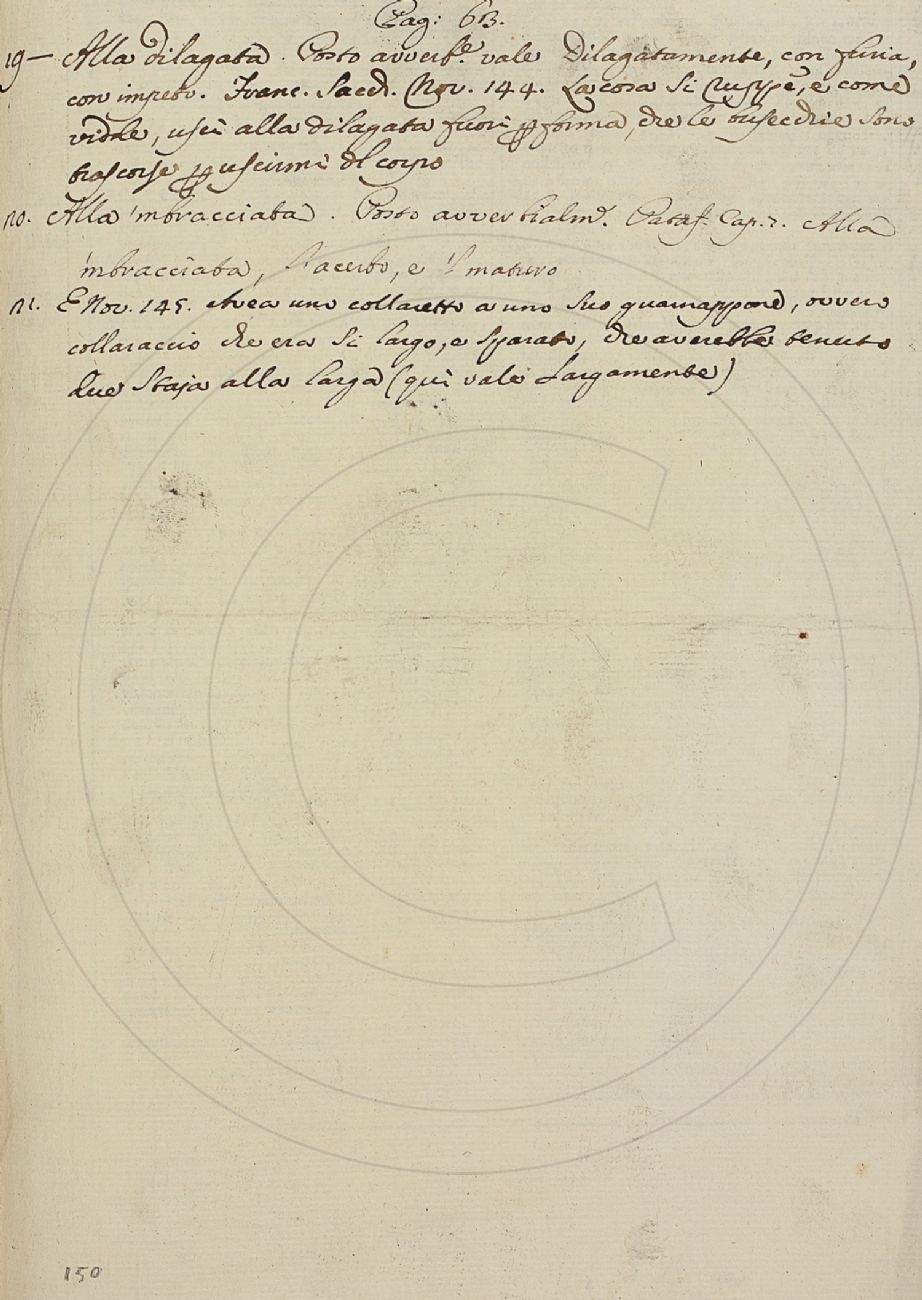 Pag: 63.
19 — Alla dilagata. Posto avverb.e vale Dilagatamente, con furia,
con impeto. Franc. Sacch. Nov. 144. La cosa si ruppe, e come
vide, uscì alla dilagata fuori p forma, che le busecchie sono
trascorse p uscirmi dl corpo
20. Alla 'mbracciata. Posto avverbialm.e Pataf. Cap. 7. Alla
'mbracciata, l'acerbo, e 'l maturo
21. E Nov. 145. Avea uno collaretto a uno suo guarnappone, ovvero
collaraccio che era sì largo, e sparato, che averebbe tenuto
due staja alla larga (quì vale Largamente)
150